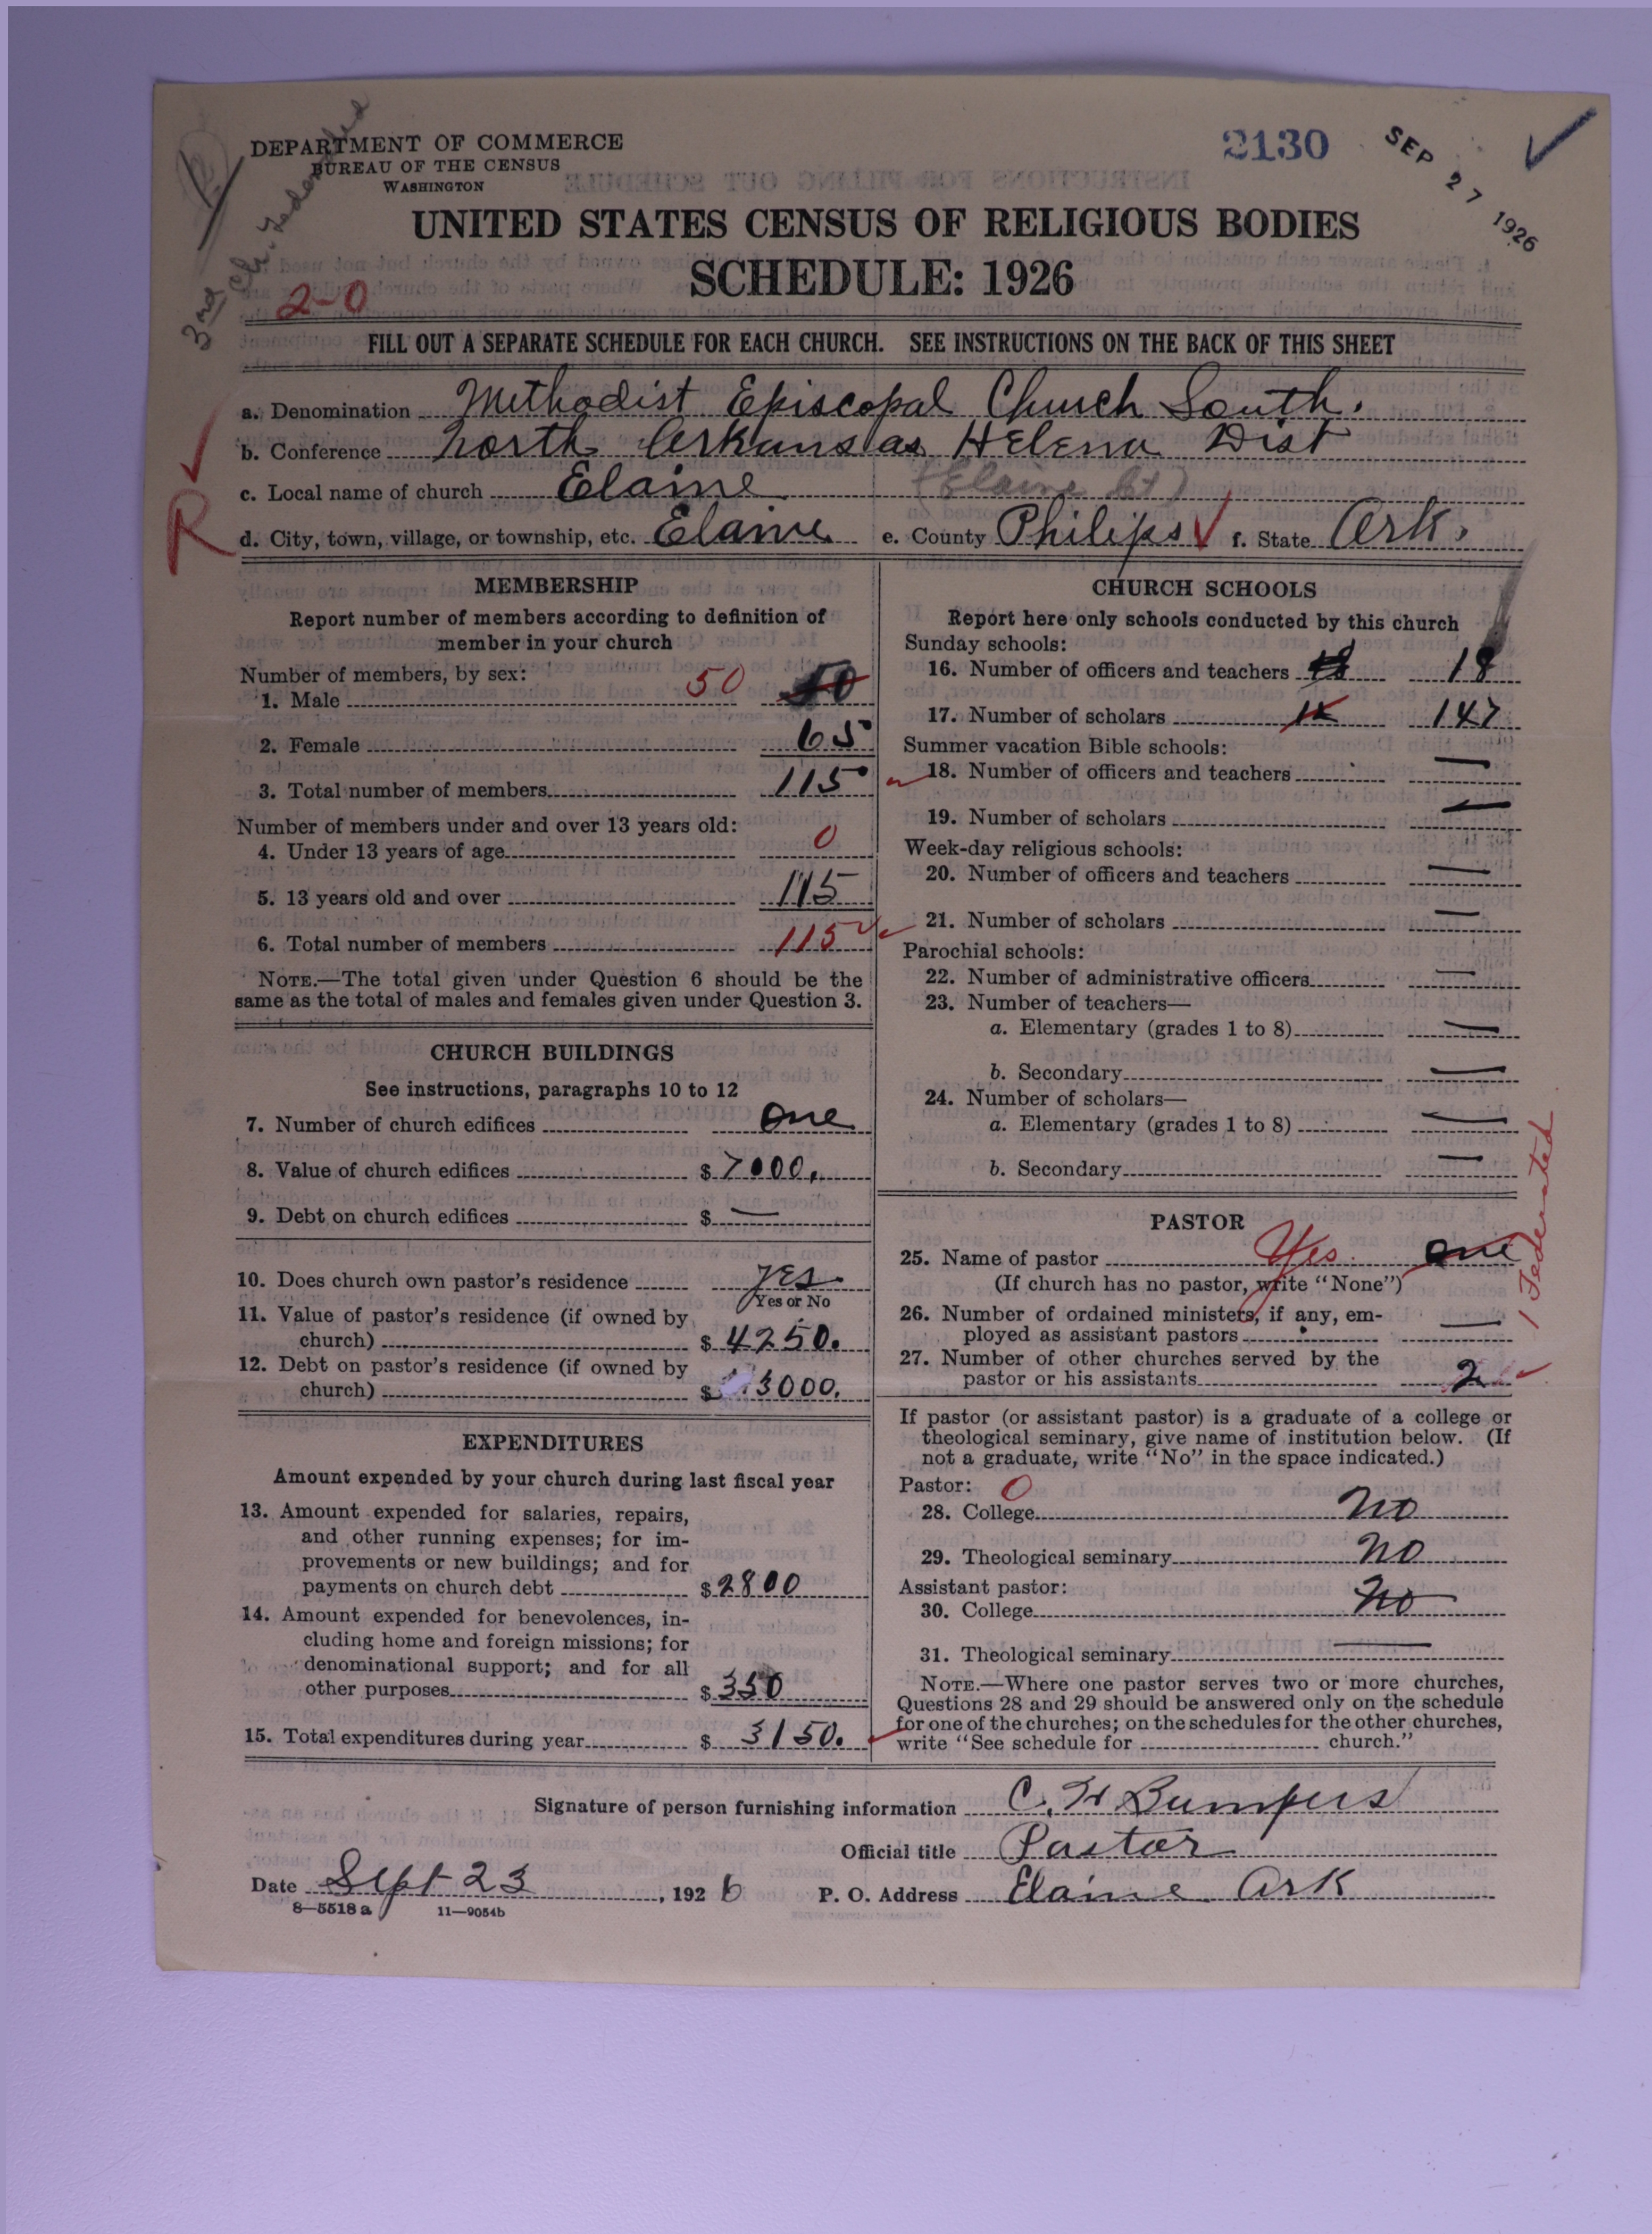 DEPARTMENT OF COMMERCE
BUREAU OF THE CENSUS
WASHINGTON
2130
SEP 27 1926
UNITED STATES CENSUS OF RELIGIOUS BODIES
SCHEDULE: 1926
2-0
FILL OUT A SEPARATE SCHEDULE FOR EACH CHURCH. SEE INSTRUCTIONS ON THE BACK OF THIS SHEET
a. Denomination Methodist Episcopal Church South.
b. Conference North Arkansas Helena Dist
c. Local name of church Elaine (Elaine Ct)
R
d. City, town, village, or township, etc. Elaine e. County Philips f. State Ark.
MEMBERSHIP
Report number of members according to definition of
member in your church
Number of members, by sex:
1. Male 50
2. Female 65
3. Total number of members 115
Number of members under and over 13 years old:
4. Under 13 years of age 0
5. 13 years old and over 115
6. Total number of members 115
NOTE.—The total given under Question 6 should be the
same as the total of males and females given under Question 3.
CHURCH BUILDINGS
See instructions, paragraphs 10 to 12
7. Number of church edifices one
8. Value of church edifices $ 7000.
9. Debt on church edifices $ —
10. Does church own pastor's residence yes
Yes or No
11. Value of pastor's residence (if owned by
church) $ 4250.
12. Debt on pastor's residence (if owned by
church) $ 3000.
EXPENDITURES
Amount expended by your church during last fiscal year
13. Amount expended for salaries, repairs,
and other running expenses; for im-
provements or new buildings; and for
payments on church debt $ 2800
14. Amount expended for benevolences, in-
cluding home and foreign missions; for
denominational support; and for all
other purposes $ 350
15. Total expenditures during year $ 3150.
CHURCH SCHOOLS
Report here only schools conducted by this church
Sunday schools:
16. Number of officers and teachers 18
17. Number of scholars 147
Summer vacation Bible schools:
18. Number of officers and teachers —
19. Number of scholars —
Week-day religious schools:
20. Number of officers and teachers —
21. Number of scholars —
Parochial schools:
22. Number of administrative officers —
23. Number of teachers—
a. Elementary (grades 1 to 8) —
b. Secondary —
24. Number of scholars—
a. Elementary (grades 1 to 8) —
b. Secondary —
1 Federated
PASTOR
25. Name of pastor Yes one
(If church has no pastor, write "None")
26. Number of ordained ministers, if any, em-
ployed as assistant pastors —
27. Number of other churches served by the
pastor or his assistants 2
If pastor (or assistant pastor) is a graduate of a college or
theological seminary, give name of institution below. (If
not a graduate, write "No" in the space indicated.)
Pastor: 0
28. College no
29. Theological seminary no
Assistant pastor:
30. College no
31. Theological seminary —
NOTE.—Where one pastor serves two or more churches,
Questions 28 and 29 should be answered only on the schedule
for one of the churches; on the schedules for the other churches,
write "See schedule for church."
Signature of person furnishing information C. H Bumpers
Official title Pastor
Date Sept 23, 1926 P. O. Address Elaine Ark
8—5518 a 11—9054b